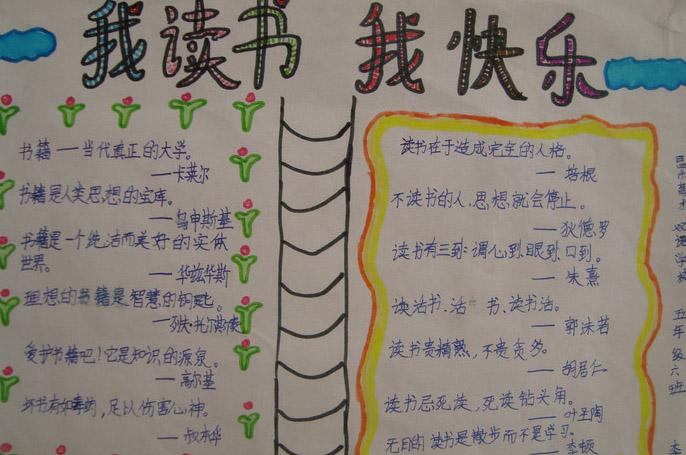 我读书 我快乐
书籍——当代真正的大学。
——卡莱尔
书籍是人类思想的宝库。
——乌申斯基
书籍是一个纯洁而美好的实体
世界。
——华兹华斯
理想的书籍是智慧的钥匙。
——列夫·托尔斯泰
爱护书籍吧！它是知识的源泉。
——高尔基
坏书有如毒药，足以伤害心神。
——叔本华
读书在于造成完全的人格。
——培根
不读书的人，思想就会停止。
——狄德罗
读书有三到：谓心到，眼到，口到。
——朱熹
读活书，活 书，读书活。
——郭沫若
读书贵精熟，不贵贪多。
——胡居仁
读书忌死读，死读钻头角。
——叶圣陶
无目的读书是散步而不是学习。
——李顿
双语学校
五年级六班